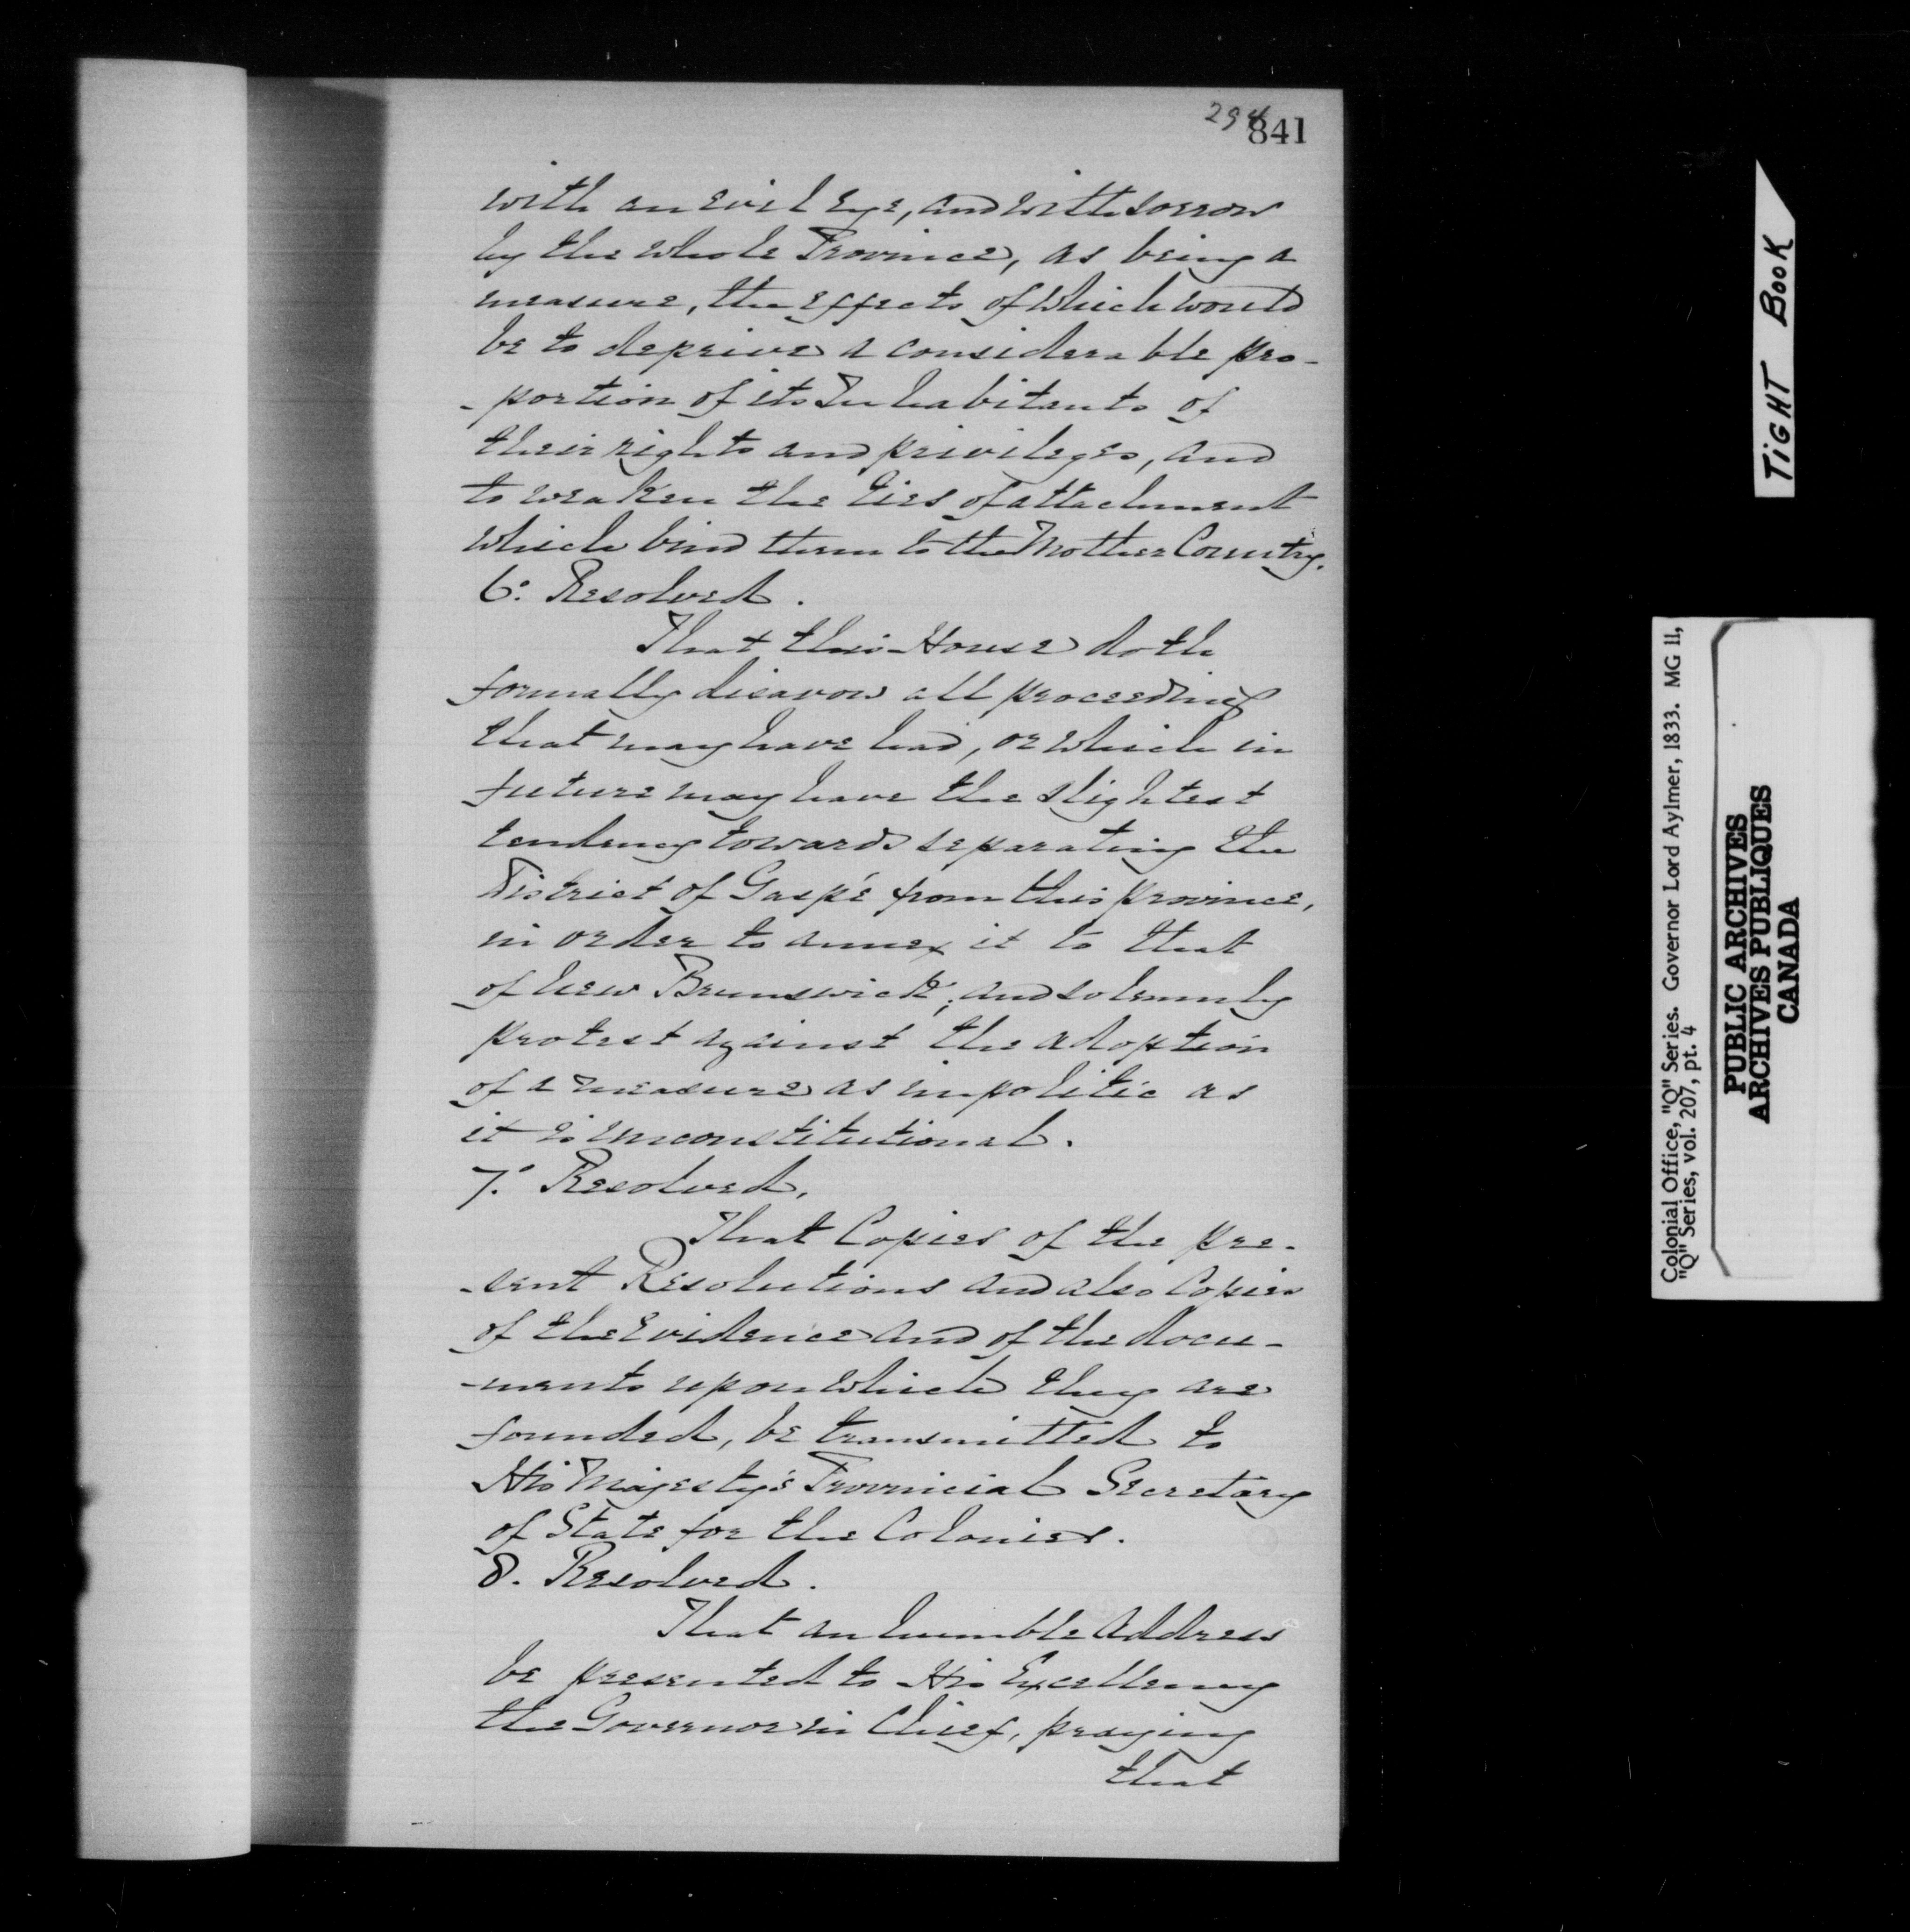 294
841
with an evil Eye, and with sorrow
by the whole Province, as being a
measure, the effects of which would
be to deprive a considerable pro-
-portion of its Inhabitants of
their rights and privileges, and
to weaken the ties of attachment
which bind them to the Mother Country.
6: Resolved.
That this House doth
formally disavow all proceedings
that may have had, or which in
future may have the slightest
tendency towards separating the
District of Gaspé from this province,
in order to annex it to that
of New Brunswick; and solemnly
protest against the adoption
of a measure as impolitic as
it is unconstitutional.
7: Resolved,
That Copies of the pre-
-sent Resolutions and also Copies
of the Evidence and of the docu-
-ments upon which they are
founded, be transmitted to
His Majesty's Provincial Secretary
of State for the Colonies.
8. Resolved.
That an humble Address
be presented to His Excellency
the Governor in Chief, praying
that
TIGHT BOOK
Colonial Office, "Q" Series. Governor Lord Aylmer, 1833. MG 11,
"Q" Series, vol. 207, pt. 4
PUBLIC ARCHIVES
ARCHIVES PUBLIQUES
CANADA